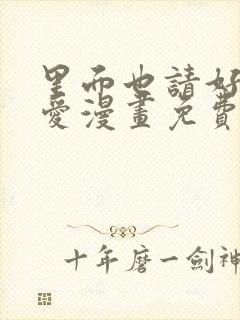 里而也請好
愛漫畫免費
十年磨一劍神